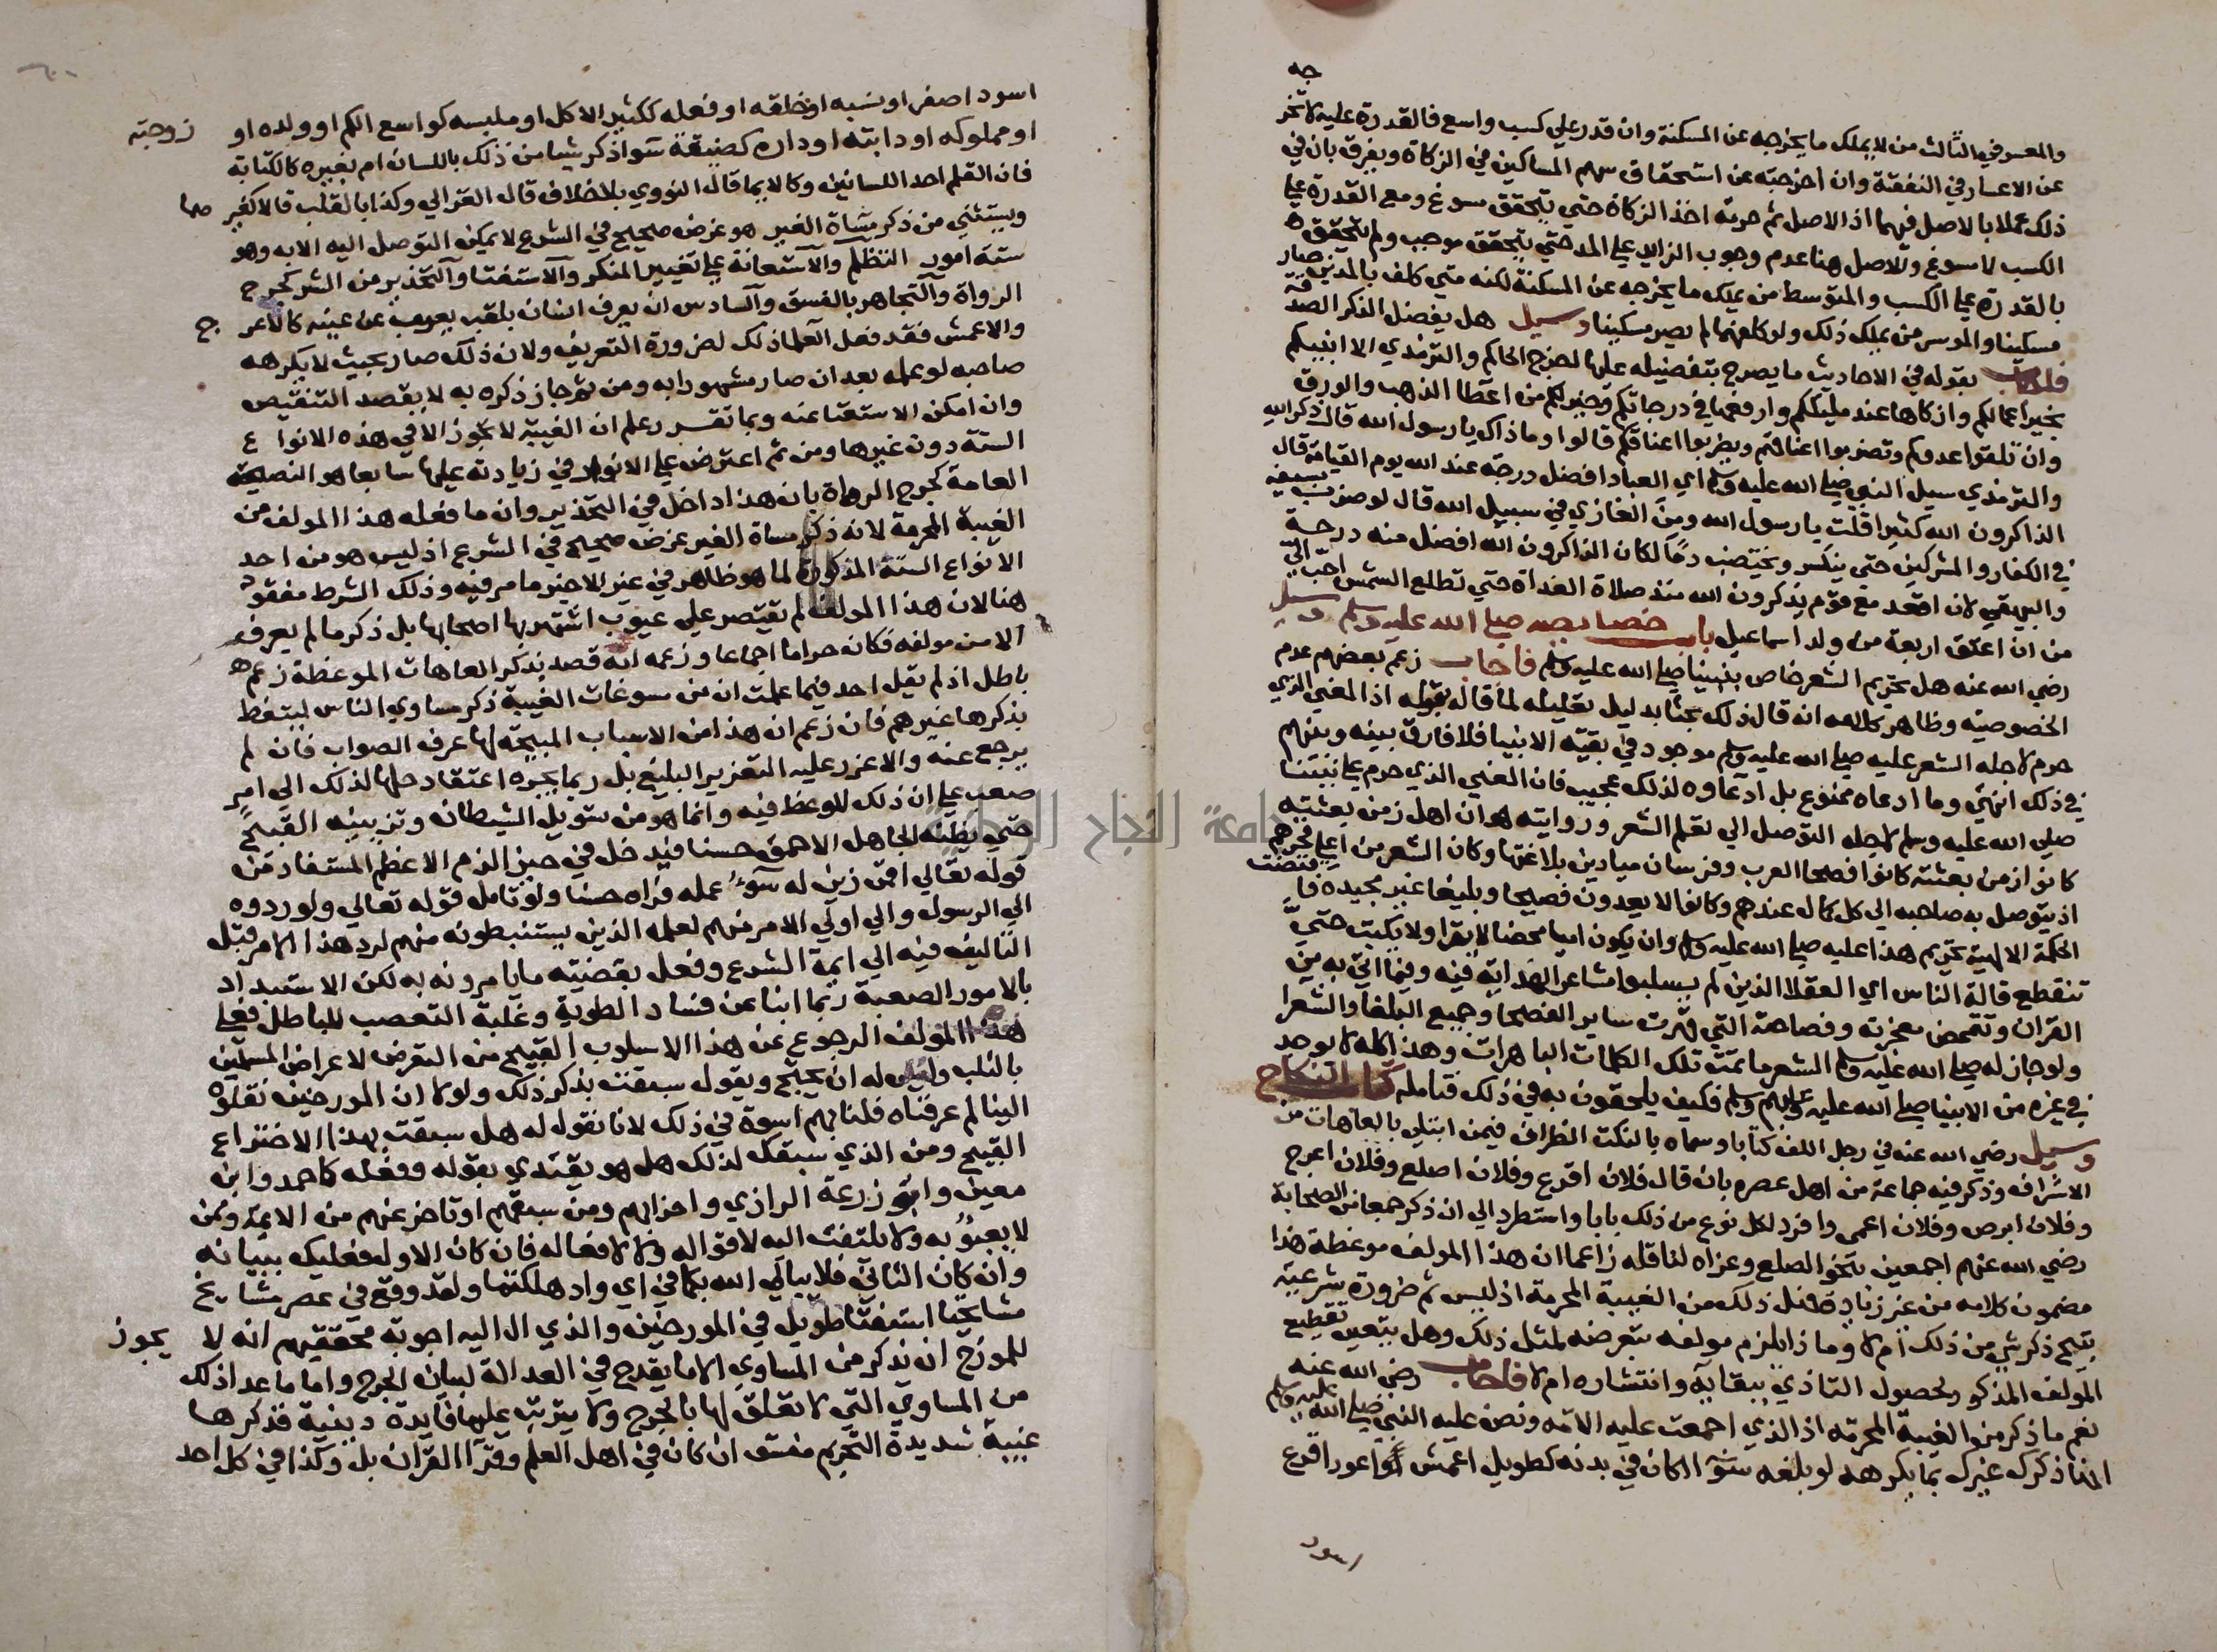 جه
والمعسر في الثالث من لا يملك ما يخرجه عن المسكنة وان قدر علي كسب واسع فالقدرة عليه لا تخر
عن الاعسار في النفقة وان اخرجته عن استحقاق سهم المساكين في الزكاة ويفرق بان في
ذلك عملا بالاصل فيهما اذ الاصل ثم حرمة اخذ الزكاة حتي يتحقق مسوغ ومع القدرة علي
الكسب لا مسوغ والاصل هنا عدم وجوب الزايد علي المد حتي يتحقق موجب ولم يتحقق
بالقدرة علي الكسب والمتوسط من يملك ما يخرجه عن المسكنة لكنه متي كلف بالمدين صار
مسكينا والموسر من يملك ذلك ولو كلفهما لم يصر مسكينا وسيل هل يفضل الذكر الصدقة
فاجاب بقوله في الاحاديث ما يصرح بتفضيله عليها اخرج الحاكم والترمذي الا انبيكم
بخير اعمالكم وازكاها عند مليككم وارفعها في درجاتكم وخير لكم من اعطا الذهب والورق
وان تلقوا عدوكم وتضربوا اعناقهم ويضربوا اعناقكم قالوا وما ذاك يا رسول الله قال ذكر الله
والترمذي سيل النبي صلي الله عليه وسلم اي العباد افضل درجة عند الله يوم القيامة قال
الذاكرون الله كثيرا قلت يا رسول الله ومن الغازي في سبيل الله قال لو ضرب بسيفه
في الكفار والمشركين حتي ينكسر ويختضب دما لكان الذاكرون الله افضل منه درجة
والبيهقي لان اقعد مع قوم يذكرون الله منذ صلاة الغداة حتي تطلع الشمس احب الي
من ان اعتق اربعة من ولد اسماعيل باب خصايصه صلي الله عليه وسلم وسيل
رضي الله عنه هل تحريم الشعر خاص بنبينا صلي الله عليه وسلم فاجاب زعم بعضهم عدم
الخصوصية وظاهر كلامه انه قال ذلك بحثا بدليل تعليله لما قاله بقوله اذ المعني الذي
حرم لاجله الشعر عليه صلي الله عليه وسلم موجود في بقية الانبيا فلا فارق بينه وبينهم
في ذلك انتهي وما ادعاه ممنوع بل ادعاوه لذلك عجيب فان المعني الذي حرم علي نبينا
صلي الله عليه وسلم لاجله التوصل الي تعلم الشعر وروايته هو ان اهل زمن بعثته
كانوا زمن بعثته كانوا فصحا العرب وفرسان ميادين بلاغتها وكان الشعر من اعلي فخرهم
اذ يتوصل به صاحبه الي كل كمال عندهم وكانوا لا يعدون فصيحا وبليغا غير مجيده فاقتضت
الحكمة الالهية تحريم هذا عليه صلي الله عليه وسلم وان يكون اميا محضا لا يقرا ولا يكتب حتي
تنقطع قالة الناس اي العقلا الذين لم يسلبوا مشاعر الهداية فيه وفيما اتي به من
القران وتتمحض معجزته وفصاحته التي قهرت ساير الفصحا وجميع البلغا والشعرا
ولو جاز له صلي الله عليه وسلم الشعر ما تمت تلك الكلمات الباهرات وهذا كله لا يوجد
في غيره من الانبيا صلي الله عليه وعليهم وسلم فكيف يلحقون به في ذلك فتامله كتاب النكاح
وسيل رضي الله عنه في رجل الف كتابا وسماه بالنكت الظراف فيمن ابتلي بالعاهات من
الاشراف وذكر فيه جماعة من اهل عصره بان قال فلان اقرع وفلان اصلع وفلان اعرج
وفلان ابرص وفلان اعمي وافرد لكل نوع من ذلك بابا واستطرد الي ان ذكر جمعا من الصحابة
رضي الله عنهم اجمعين بنحو الصلع وعزاه لناقله زاعما ان هذا المولف موعظة هذا
مضمون كلامه من غير زيادة فهل ذلك من الغيبة المحرمة اذ ليس ثم ضرورة شرعية
تبيح ذكر شي من ذلك ام لا وماذا يلزم مولفه بتعرضه لمثل ذلك وهل يتعين تقطيع
المولف المذكور لحصول التاذي ببقايه وانتشاره ام لا فاجاب رضي الله عنه
نعم ما ذكر من الغيبة المحرمة اذ الذي اجمعت عليه الامة ونص عليه النبي صلي الله عليه وسلم
انها ذكرك غيرك بما يكرهه لو بلغه سوا اكان في بدنه كطويل اعمش اعور اقرع
اسود
اسود اصفر او نسبه او خلقه او فعله ككثير الاكل او ملبسه كواسع الكم او ولده او زوجته
او مملوكه او دابته او داره كضيقة سوا ذكر شيا من ذلك باللسان ام بغيره كالكتابة
فان القلم احد اللسانين وكالايما قال النووي بلا خلاف قال الغزالي وكذا بالقلب قالا كغير
ويستثني من ذكر مساة الغير هو غرض صحيح في الشرع لا يمكن التوصل اليه الا به وهو
ستة امور التظلم والاستعانة علي تغيير المنكر والاستفتا والتحذير من الشر كجرح
الرواة والتجاهر بالفسق والسادس ان يعرف انسان بلقب يعرب عن عيبه كالاعرج
والاعمش فقد فعل العلما ذلك لضرورة التعريف ولان ذلك صار بحيث لا يكرهه
صاحبه لو علمه بعد ان صار مشهورا به ومن ثم جاز ذكره به لا بقصد التنقيص
وان امكن الاستغنا عنه وبما تقرر علم ان الغيبة لا تجوز الا في هذه الانواع
الستة دون غيرها ومن ثم اعترض علي الانوار في زيادته عليها سابعا هو النصيحة
العامة كجرح الرواة بان هذا داخل في التحذير وان ما فعله هذا المولف من
الغيبة المحرمة لانه ذكر مساة الغير غرض صحيح في الشرع اذ ليس هو من احد
الانواع الستة المذكورة لما هو ظاهر في غير الاخير ما مر فيه وذلك الشرط مفقود
هنا لان هذا المولف لم يقتصر علي عيوب اشتهر بها اصحابها بل ذكر ما لم يعرف
الا من مولفه فكان حراما اجماعا وزعمه انه قصد بذكر العاهات الموعظة زعم
باطل اذ لم يقل احد فيما علمت ان من مسوغات الغيبة ذكر مساوي الناس ليتعظ
بذكرها غيرهم فان زعم ان هذا من الاسباب المبيحة لها عرف الصواب فان لم
يرجع عنه والا عزر عليه التعزير البليغ بل ربما يجره اعتقاد حلها لذلك الي امر
صعب علي ان ذلك للوعظ فيه وانما هو من تسويل الشيطان وتزيينه القبيح
حتي يظنه الجاهل الاحمق حسنا فيدخل في حيز الذم الاعظم المستفاد من
قوله تعالي افمن زين له سوء عمله فراه حسنا ولو تامل قوله تعالي ولو ردوه
الي الرسول والي اولي الامر منهم لعلمه الذين يستنبطونه منهم لرد هذا الامر قبل
التاليف فيه الي ايمة الشرع وفعل بقضية ما يامرونه به لكن الاستبداد
بالامور الصعبة ربما انبا عن فساد الطوية وغلبة التعصب للباطل فعلي
هذا المولف الرجوع عن هذا الاسلوب القبيح من التعرض لاعراض المسلمين
بالثلب وليس له ان يحتج ويقول سبقت بذكر ذلك ولولا ان المورخين نقلوه
الينا لم عرفناه فلنا بهم اسوة في ذلك لانا نقول له هل سبقت بهذا الاختراع
القبيح ومن الذي سبقك لذلك هل هو يقتدي بقوله وفعله كاحمد وابن
معين وابو زرعة الرازي واحزابهم ومن سبقهم او تاخر عنهم من الايمة ومن
لا يعبؤ به ولا يلتفت اليه لاقواله ولا لافعاله فان كان الاول فعليك ببيانه
وان كان الثاني فلا يبالي الله بكما في اي واد هلكتما ولقد وقع في عصر مشايخ
مشايخنا استفتا طويل في المورخين والذي ال اليه اجوبة محققيهم انه لا يجوز
للمورخ ان يذكر من المساوي الا ما يقدح في العدالة لبيان الجرح واما ما عدا ذلك
من المساوي التي لا تعلق لها بالجرح ولا يترتب عليها فايدة دينية فذكرها
غيبة شديدة التحريم مفسق ان كان في اهل العلم وقرا القران بل وكذا في كل احد
جامعة النجاح الوطنية